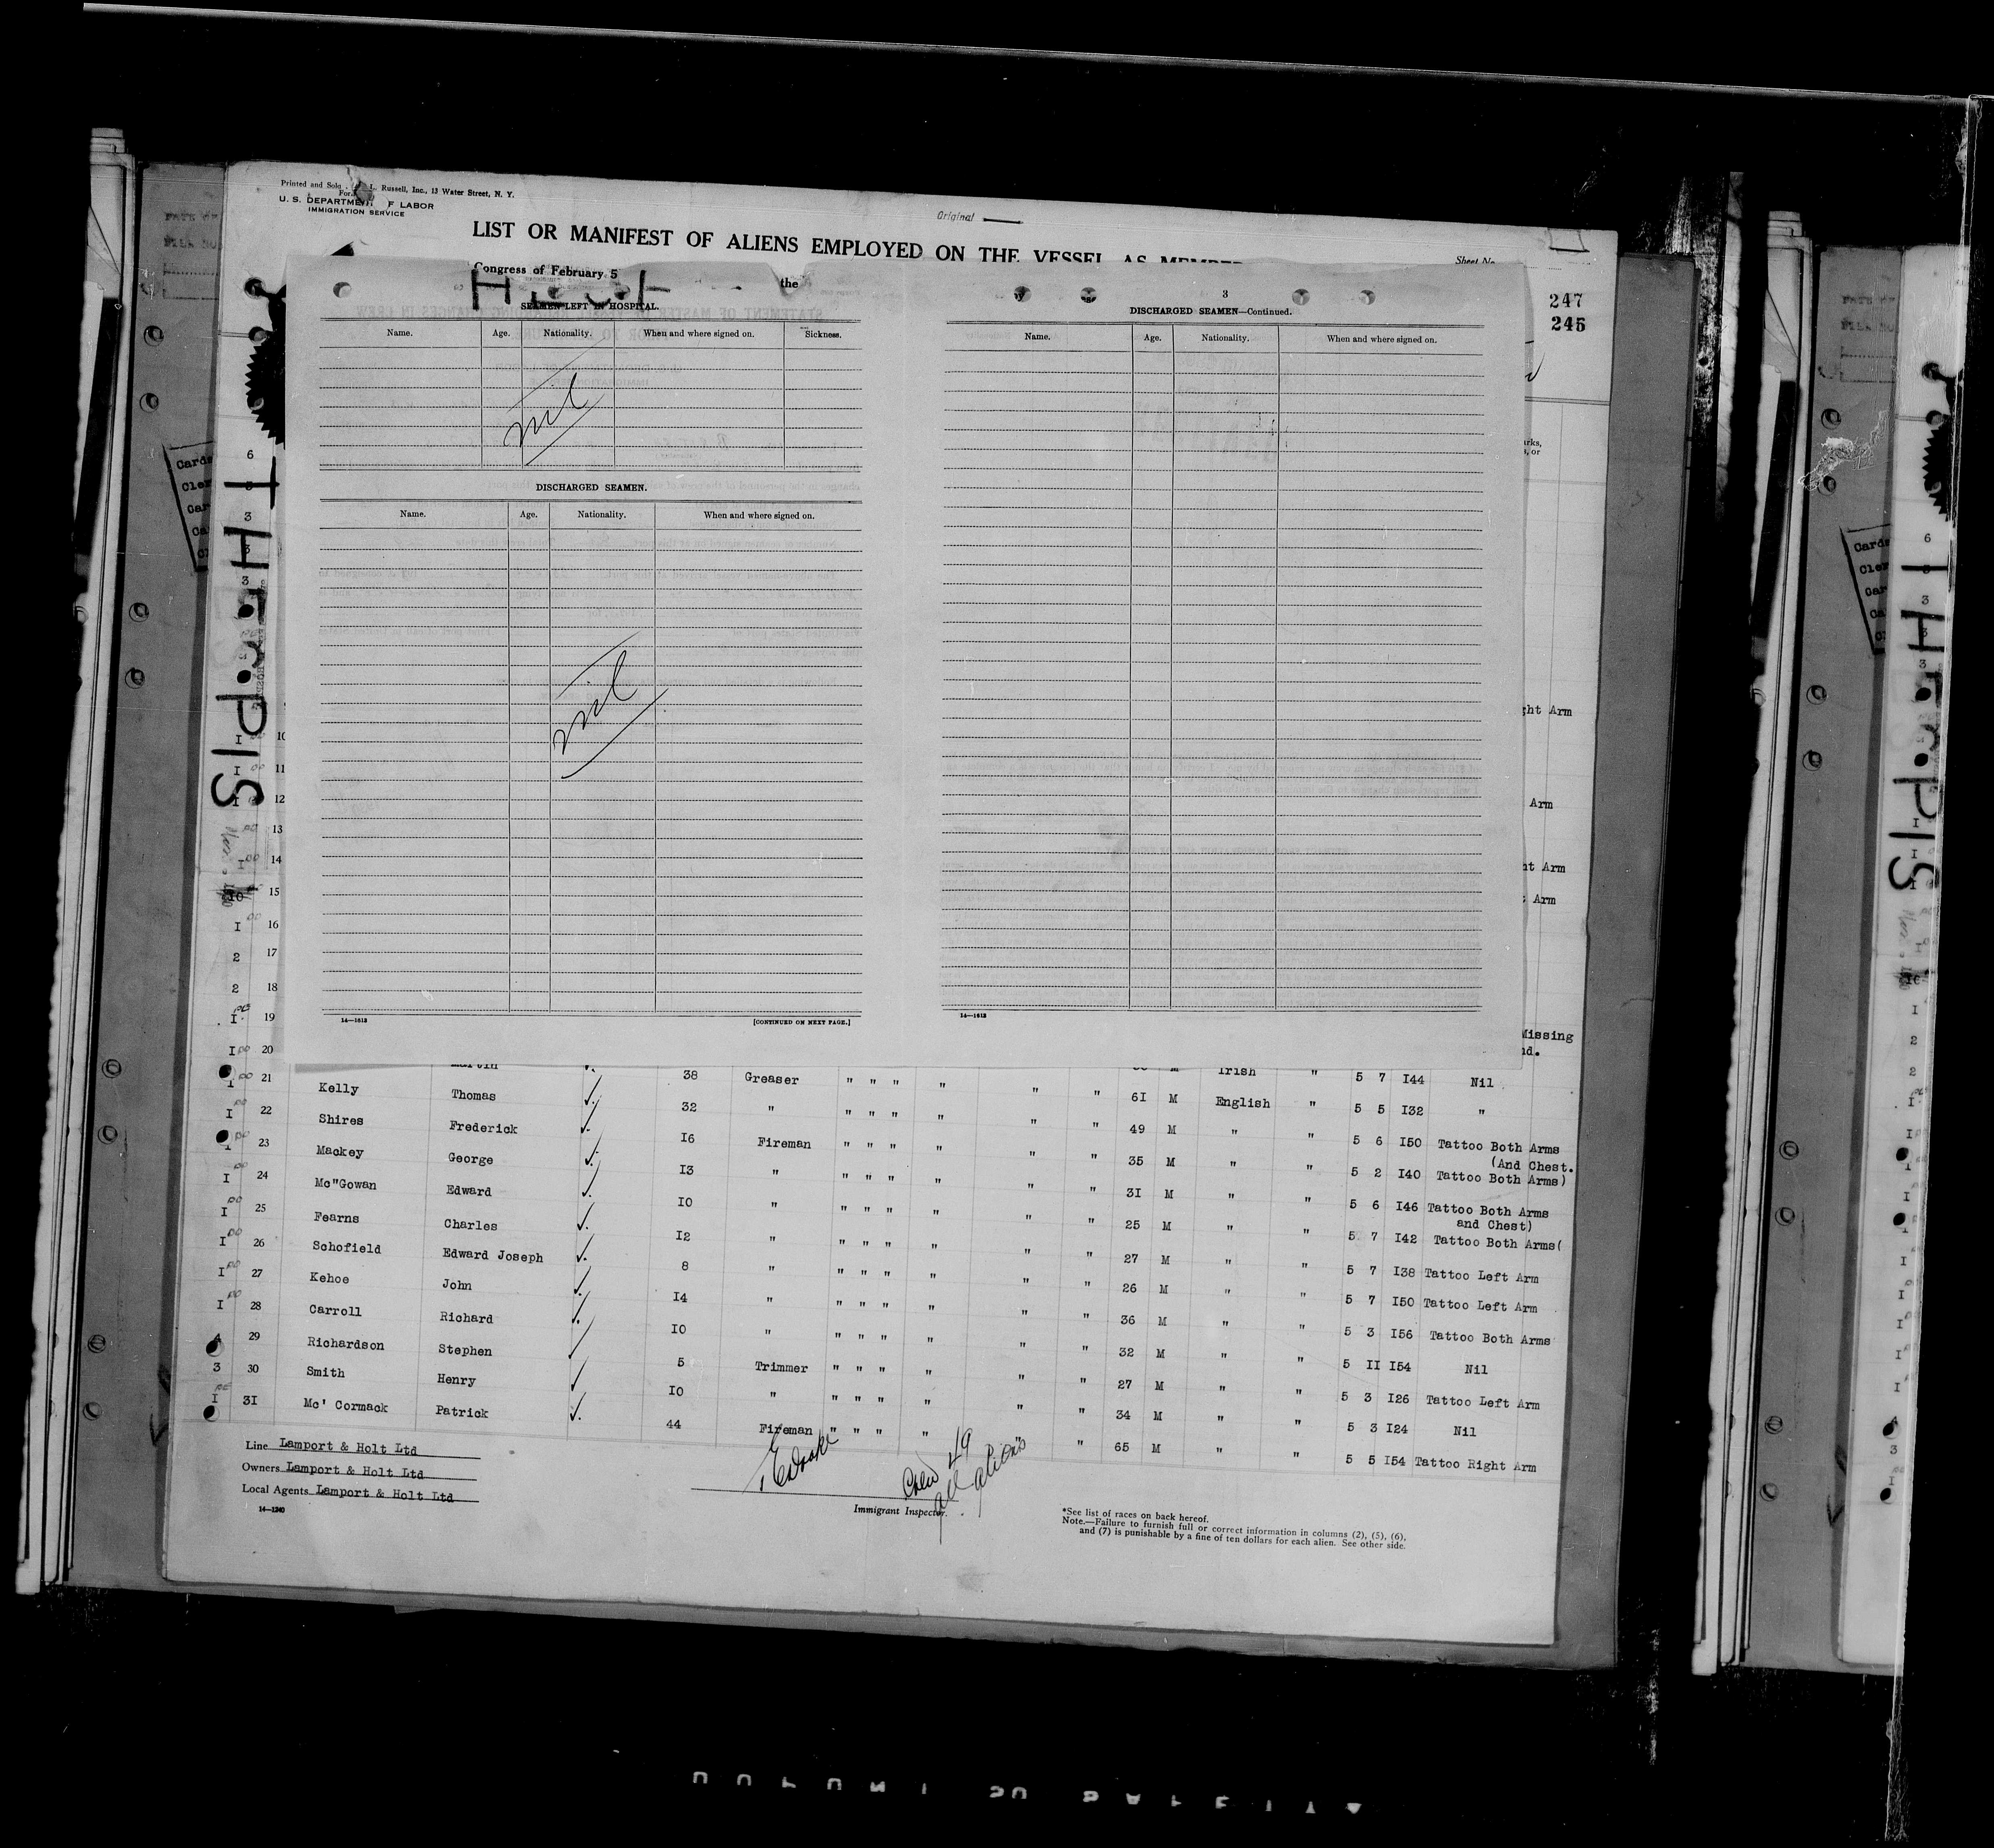 Printed and Sold L. Russell, Inc., 13 Water Street, N. Y.
For
U. S. DEPARTMENT F LABOR
IMMIGRATION SERVICE
Original
LIST OR MANIFEST OF ALIENS EMPLOYED ON THE VESSEL AS MEMBER
Sheet No.
Congress of February 5 the
247
245
SEAMEN LEFT IN HOSPITAL.
Name. Age. Nationality. When and where signed on. Sickness.
nil
DISCHARGED SEAMEN.
Name. Age. Nationality. When and where signed on.
nil
14—1613 [CONTINUED ON NEXT PAGE.]
3
DISCHARGED SEAMEN—Continued.
Name. Age. Nationality. When and where signed on.
14—1613
ght Arm
Arm
ht Arm
Arm
Missing
nd.
6
3
3
3
I 10
I 11
I 12
13
I 14
10 15
I 16
2 17
2 18
I 19
I 20 Martin
I 21 Kelly Thomas 38 Greaser " " " " " " 61 M English " 5 7 144 Nil
Irish "
I 22 Shires Frederick 32 " " " " " " " 49 M " " 5 5 132 "
I 23 Mackey George 16 Fireman " " " " " " 35 M " " 5 6 150 Tattoo Both Arms
(And Chest.
I 24 Mc"Gowan Edward 13 " " " " " " " 31 M " " 5 2 140 Tattoo Both Arms)
I 25 Fearns Charles 10 " " " " " " " 25 M " " 5 6 146 Tattoo Both Arms
and Chest)
I 26 Schofield Edward Joseph 12 " " " " " " " 27 M " " 5 7 142 Tattoo Both Arms(
I 27 Kehoe John 8 " " " " " " " 26 M " " 5 7 138 Tattoo Left Arm
I 28 Carroll Richard 14 " " " " " " " 36 M " " 5 7 150 Tattoo Left Arm
29 Richardson Stephen 10 " " " " " " " 32 M " " 5 3 156 Tattoo Both Arms
3 30 Smith Henry 5 Trimmer " " " " " " 27 M " " 5 11 154 Nil
I 31 Mc' Cormack Patrick 10 " " " " " " " 34 M " " 5 3 126 Tattoo Left Arm
5 3 124 Nil
44 Fireman " " " " " " 65 M " " 5 5 154 Tattoo Right Arm
Line Lamport & Holt Ltd
Owners Lamport & Holt Ltd
Local Agents Lamport & Holt Ltd
14—1240
Crew 49
all aliens
Immigrant Inspector.
*See list of races on back hereof.
Note.—Failure to furnish full or correct information in columns (2), (5), (6),
and (7) is punishable by a fine of ten dollars for each alien. See other side.